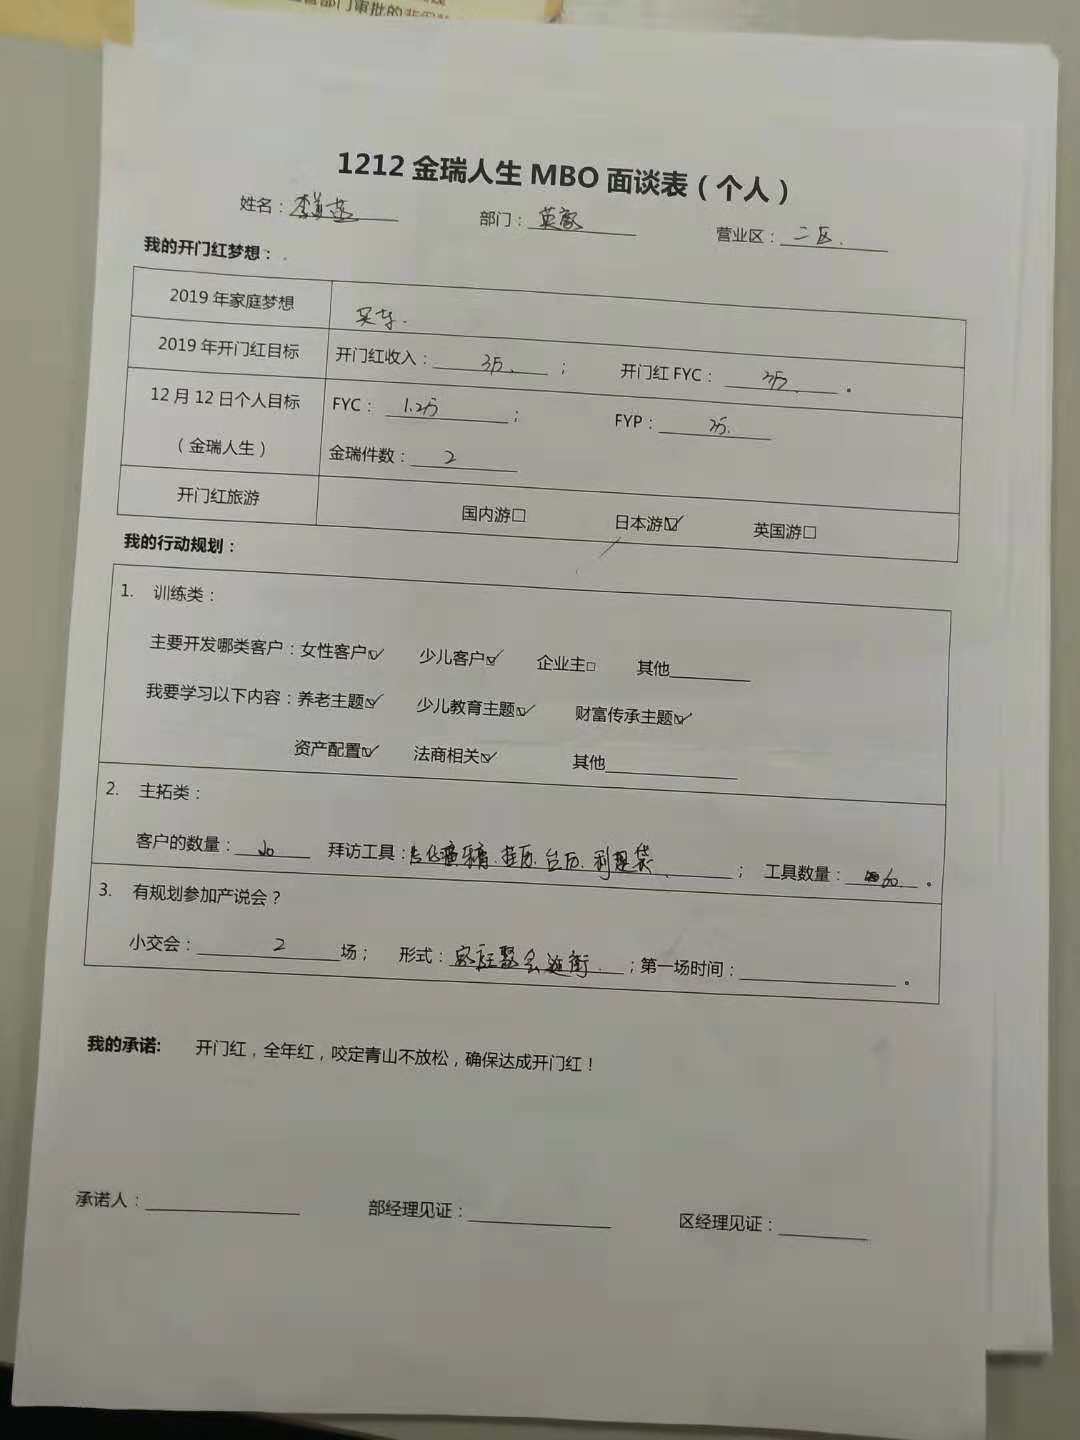 管部门审批的非
1212 金瑞人生 MBO 面谈表（个人）
姓名： 部门：英豪 营业区：二区.
我的开门红梦想：
2019 年家庭梦想 买车.
2019 年开门红目标 开门红收入：3万. ； 开门红 FYC：3万. 。
12 月 12 日个人目标 FYC：1.2万 ； FYP：
（金瑞人生） 金瑞件数：2
开门红旅游 国内游□ 日本游☑ 英国游□
我的行动规划：
1. 训练类：
主要开发哪类客户：女性客户☑ 少儿客户☑ 企业主□ 其他
我要学习以下内容：养老主题☑ 少儿教育主题☑ 财富传承主题☑
资产配置☑ 法商相关☑ 其他
2. 主拓类：
客户的数量： 拜访工具：挂历.台历.利是袋. ； 工具数量：60. 。
3. 有规划参加产说会？
小交会：2 场； 形式：家庭聚会 ；第一场时间： 。
我的承诺: 开门红，全年红，咬定青山不放松，确保达成开门红！
承诺人： 部经理见证： 区经理见证：